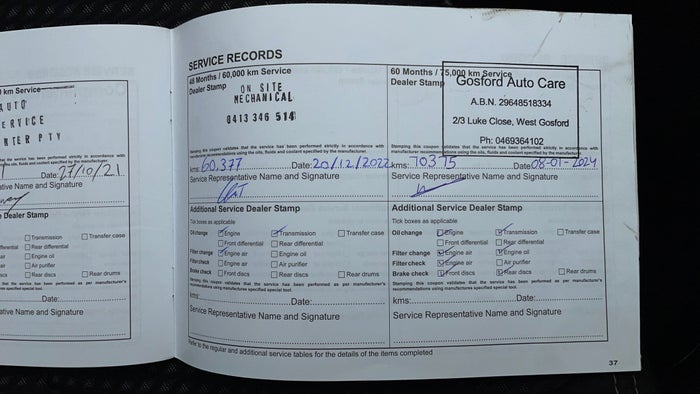 km Service
AUTO
SERVICE
NTER PTY
that the service has been performed strictly in accordance with
oils, fluids and coolant specified by the manufacturer.
Date: 27/10/21
tative Name and Signature
e Dealer Stamp
Transmission
Transfer case
Rear differential
Engine oil
Air purifier
Rear discs
Rear drums
Date:
ative Name and Signature
SERVICE RECORDS
48 Months / 60,000 km Service
Dealer Stamp
ON SITE
MECHANICAL
0413 346 514
Stamping this coupon validates that the service has been performed strictly in accordance with
recommendations using the oils, fluids and coolant specified by the manufacturer.
kms: 60,377 Date: 20/12/2022
Service Representative Name and Signature
Additional Service Dealer Stamp
Tick boxes as applicable
Oil change Engine Transmission Transfer case
Front differential Rear differential
Filter change Engine air Engine oil
Filter check Engine air Air purifier
Brake check Front discs Rear discs Rear drums
Stamping this coupon validates that the service has been performed as per manufacturer's
recommendations using manufactures specified special tool.
kms: Date:
Service Representative Name and Signature
60 Months / 75,000 km Service
Dealer Stamp
Gosford Auto Care
A.B.N. 29648518334
2/3 Luke Close, West Gosford
Ph: 0469364102
Stamping this coupon validates that the service has been performed strictly in accordance with
recommendations using the oils, fluids and coolant specified by the manufacturer.
kms: 70375 Date: 08-01-2024
Service Representative Name and Signature
Additional Service Dealer Stamp
Tick boxes as applicable
Oil change Engine Transmission Transfer case
Front differential Rear differential
Filter change Engine air Engine oil
Filter check Engine air Air purifier
Brake check Front discs Rear discs Rear drums
Stamping this coupon validates that the service has been performed as per manufacturer's
recommendations using manufactures specified special tool.
kms: Date:
Service Representative Name and Signature
Refer to the regular and additional service tables for the details of the items completed
37